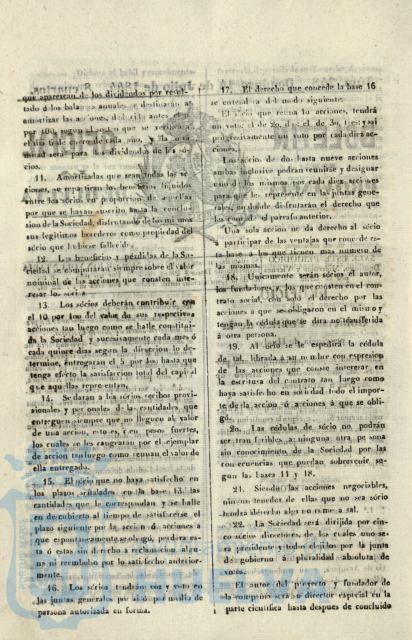 que aparezcan de los dividendos por resul-
tado de los balances anuales se destinarán á
amortizar las acciones, del
por 100, segun el que se verificará
el dia 6 de enero de cada año, y la otra
mitad será para los dividendos de los só-
cios.
11. Amortizadas que sean todas las ac-
ciones, se repartirán los beneficios líquidos
entre los sócios en proporcion de aquellas
por que se hayan suscrito hasta la disolu-
cion de la Sociedad, disfrutando de los mismos
sus legítimos herederos como propiedad del
sócio que hubiese fallecido.
12. Los beneficios y pérdidas de la So-
ciedad se computarán siempre sobre el valor
nominal de las acciones que consten inte-
resar los sócios.
13. Los sócios deberán contribuir con
el 10 por 100 del valor de sus respectivas
acciones tan luego como se halle constitui-
da la Sociedad y sucesivamente cada mes ó
cada quince dias segun la direccion lo de-
termine, entregarán el 5 por 100 hasta que
tenga efecto la satisfaccion total del capital
que aquellas representan.
14. Se darán á los sócios recibos provi-
sionales y personales de las cantidades que
entreguen siempre que no lleguen al valor
de una accion, esto es, pesos fuertes,
los cuales se les cangearán por el ejemplar
de accion tan luego como reunan el valor de
ella entregado.
15. El sócio que no haya satisfecho en
los plazos señalados en la base 13 las
cantidades que le correspondan y se halle
en descubierto al tiempo de satisfacerse el
plazo siguiente por la accion ó acciones á
que espontáneamente se obligó, perderá es-
ta ó estas sin derecho á reclamacion algu-
na ni reembolso por lo satisfecho anterior-
mente.
16. Los sócios tendrán voz y voto en
las juntas generales por sí ó por medio de
persona autorizada en forma.
17. El derecho que concede la base 16
se entenderá del modo siguiente.
El sócio que reuna 10 acciones, tendrá
un voto: el de 20, dos: el de 30, tres: y así
progresivamente un voto por cada diez ac-
ciones.
Los sócios de dos hasta nueve acciones
ambas inclusive podrán reunirse y designar
uno de los mismos por cada diez acciones
para que les represente en las juntas gene-
rales, en donde disfrutarán el derecho que
les concede el párrafo anterior.
Una sola accion no da derecho al sócio
participar de las ventajas que concede es-
ta base á los que tienen mas número de
las mismas.
18. Unicamente serán sócios el autor,
los fundadores y los que consten en el con-
trato social, con solo el derecho por las
acciones á que se obligaron en el mismo y
tengan la cédula que se dirá no transferida
á otra persona.
19. Al sócio se le espedirá la cédula
de tal, librada á su nombre con espresion
de las acciones que conste interesar en
la escritura del contrato tan luego como
haya satisfecho en su totalidad todo el impor-
te de la accion ó acciones á que se obli-
gó.
20. Las cédulas de sócio no podrán
ser transferibles á ninguna otra persona
sin conocimiento de la Sociedad por las
consecuencias que puedan sobrevenir se-
gun las bases 11 y 18.
21. Siendo las acciones negociables,
ningun tenedor de ellas que no sea sócio
tendrá derecho alguno como á tal.
22. La Sociedad será dirigida por cin-
co sócios directores, de los cuales uno se-
rá presidente y todos elegidos por la junta
de gobierno á pluralidad absoluta de
votos.
El autor del proyecto y fundador de
la compañia será un director especial en la
parte científica hasta despues de concluido